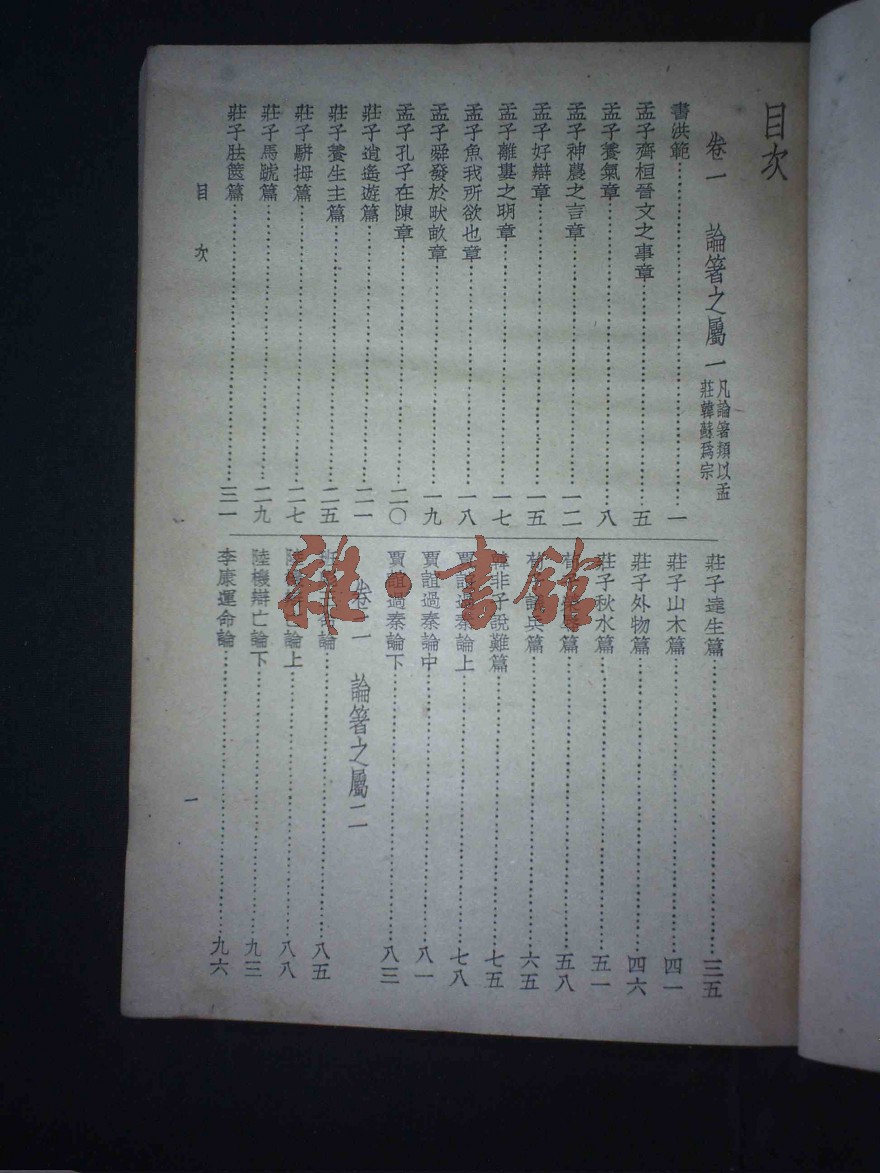 目次
卷一 論箸之屬一 凡論箸類以孟莊韓蘇爲宗
書洪範……一
孟子齊桓晉文之事章……五
孟子養氣章……八
孟子神農之言章……一二
孟子好辯章……一五
孟子離婁之明章……一七
孟子魚我所欲也章……一八
孟子舜發於畎畝章……一九
孟子孔子在陳章……二〇
莊子逍遙遊篇……二一
莊子養生主篇……二五
莊子駢拇篇……二七
莊子馬蹏篇……二九
莊子胠篋篇……三一
莊子達生篇……三五
莊子山木篇……四一
莊子外物篇……四六
莊子秋水篇……五一
篇……五八
荀子議兵篇……六五
韓非子說難篇……七五
賈誼過秦論上……七八
賈誼過秦論中……八一
賈誼過秦論下……八三
卷二 論箸之屬二
命論……八五
陸機辯亡論上……八八
陸機辯亡論下……九三
李康運命論……九六
目次
一
雜·書館